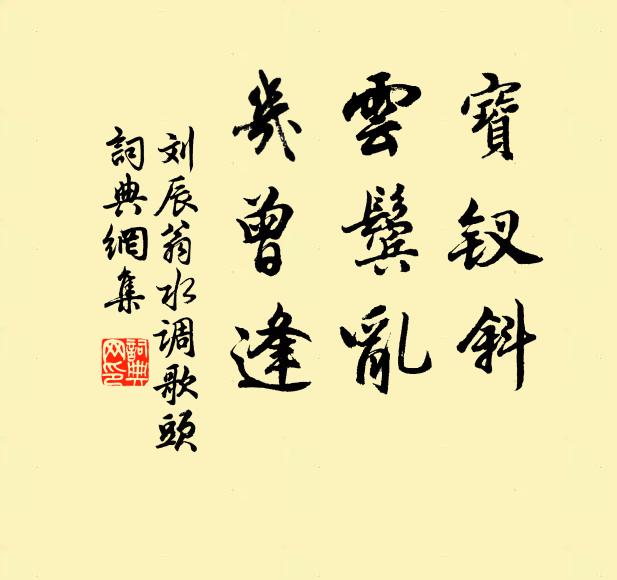 寶钗斜
雲鬓亂
幾曾逢
刘辰翁水调歌頭
詞典網集
詞典网印